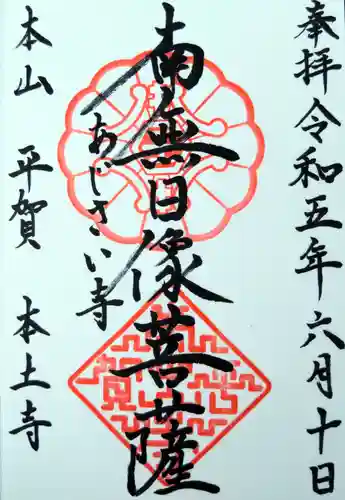 奉拝 令和五年六月十日
南無日像菩薩
あじさい寺
本山 平賀 本土寺